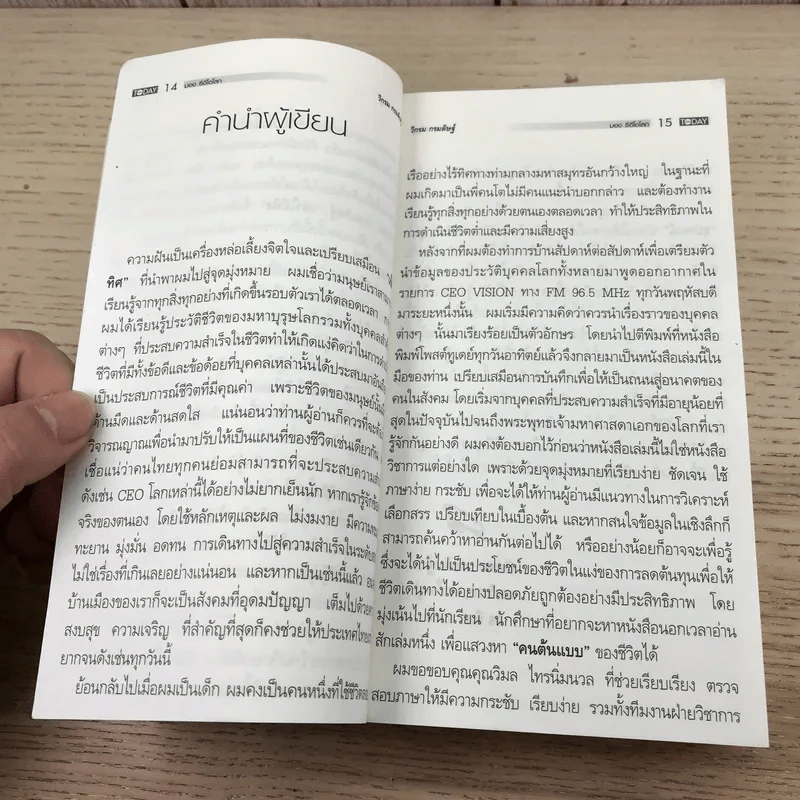 TODAY 14 มอง ซีอีโอโลก
วิกรม
คำนำผู้เขียน
ความฝันเป็นเครื่องหล่อเลี้ยงจิตใจและเปรียบเสมือน
ทิศ" ที่นำพาผมไปสู่จุดมุ่งหมาย ผมเชื่อว่ามนุษย์เรา
เรียนรู้จากทุกสิ่งทุกอย่างที่เกิดขึ้นรอบตัวเราได้ตลอดเวลา
ผมได้เรียนรู้ประวัติชีวิตของมหาบุรุษโลกรวมทั้งบุคคล
ต่างๆ ที่ประสบความสำเร็จในชีวิตทำให้เกิดแง่คิดว่าในการ
ชีวิตที่มีทั้งข้อดีและข้อด้อยที่บุคคลเหล่านั้นได้ประสบมา
เป็นประสบการณ์ชีวิตที่มีคุณค่า เพราะชีวิตของมนุษย์นั้น
ด้านมืดและด้านสดใส แน่นอนว่าท่านผู้อ่านก็ควรที่จะ
วิจารณญาณเพื่อนำมาปรับให้เป็นแผนที่ของชีวิตเช่นเดียวกัน
เชื่อแน่ว่าคนไทยทุกคนย่อมสามารถที่จะประสบความ
ดังเช่น CEO โลกเหล่านี้ได้อย่างไม่ยากเย็นนัก หากเรารู้จัก
จริงของตนเอง โดยใช้หลักเหตุและผล ไม่งมงาย มีความ
ทะยาน มุ่งมั่น อดทน การเดินทางไปสู่ความสำเร็จในระดับ
ไม่ใช่เรื่องที่เกินเลยอย่างแน่นอน และหากเป็นเช่นนี้แล้ว
บ้านเมืองของเราก็จะเป็นสังคมที่อุดมปัญญา เต็มไปด้วย
สงบสุข ความเจริญ ที่สำคัญที่สุดก็คงช่วยให้ประเทศไทย
ยากจนดังเช่นทุกวันนี้
ย้อนกลับไปเมื่อผมเป็นเด็ก ผมคงเป็นคนหนึ่งที่ใช้ชีวิต
วิกรม กรมดิษฐ์ มอง ซีอีโอโลก 15 TODAY
เรืออย่างไร้ทิศทางท่ามกลางมหาสมุทรอันกว้างใหญ่ ในฐานะที่
ผมเกิดมาเป็นพี่คนโตไม่มีคนแนะนำบอกกล่าว และต้องทำงาน
เรียนรู้ทุกสิ่งทุกอย่างด้วยตนเองตลอดเวลา ทำให้ประสิทธิภาพใน
การดำเนินชีวิตต่ำและมีความเสี่ยงสูง
หลังจากที่ผมต้องทำการบ้านสัปดาห์ต่อสัปดาห์เพื่อเตรียมตัว
นำข้อมูลของประวัติบุคคลโลกทั้งหลายมาพูดออกอากาศใน
รายการ CEO VISION ทาง FM 96.5 MHz ทุกวันพฤหัสบดี
มาระยะหนึ่งนั้น ผมเริ่มมีความคิดว่าควรนำเรื่องราวของบุคคล
ต่างๆ นั้นมาเรียงร้อยเป็นตัวอักษร โดยนำไปตีพิมพ์ที่หนังสือ
พิมพ์โพสต์ทูเดย์ทุกวันอาทิตย์แล้วจึงกลายมาเป็นหนังสือเล่มนี้ใน
มือของท่าน เปรียบเสมือนการบันทึกเพื่อให้เป็นถนนสู่อนาคตของ
คนในสังคม โดยเริ่มจากบุคคลที่ประสบความสำเร็จที่มีอายุน้อยที่
สุดในปัจจุบันไปจนถึงพระพุทธเจ้ามหาศาสดาเอกของโลกที่เรา
รู้จักกันอย่างดี ผมคงต้องบอกไว้ก่อนว่าหนังสือเล่มนี้ไม่ใช่หนังสือ
วิชาการแต่อย่างใด เพราะด้วยจุดมุ่งหมายที่เรียบง่าย ชัดเจน ใช้
ภาษาง่าย กระชับ เพื่อจะได้ให้ท่านผู้อ่านมีแนวทางในการวิเคราะห์
เลือกสรร เปรียบเทียบในเบื้องต้น และหากสนใจข้อมูลในเชิงลึกก็
สามารถค้นคว้าหาอ่านกันต่อไปได้ หรืออย่างน้อยก็อาจจะเพื่อรู้
ซึ่งจะได้นำไปเป็นประโยชน์ของชีวิตในแง่ของการลดต้นทุนเพื่อให้
ชีวิตเดินทางได้อย่างปลอดภัยถูกต้องอย่างมีประสิทธิภาพ โดย
มุ่งเน้นไปที่นักเรียน นักศึกษาที่อยากจะหาหนังสือนอกเวลาอ่าน
สักเล่มหนึ่ง เพื่อแสวงหา "คนต้นแบบ" ของชีวิตได้
ผมขอขอบคุณคุณวิมล ไทรนิ่มนวล ที่ช่วยเรียบเรียง ตรวจ
สอบภาษาให้มีความกระชับ เรียบง่าย รวมทั้งทีมงานฝ่ายวิชาการ